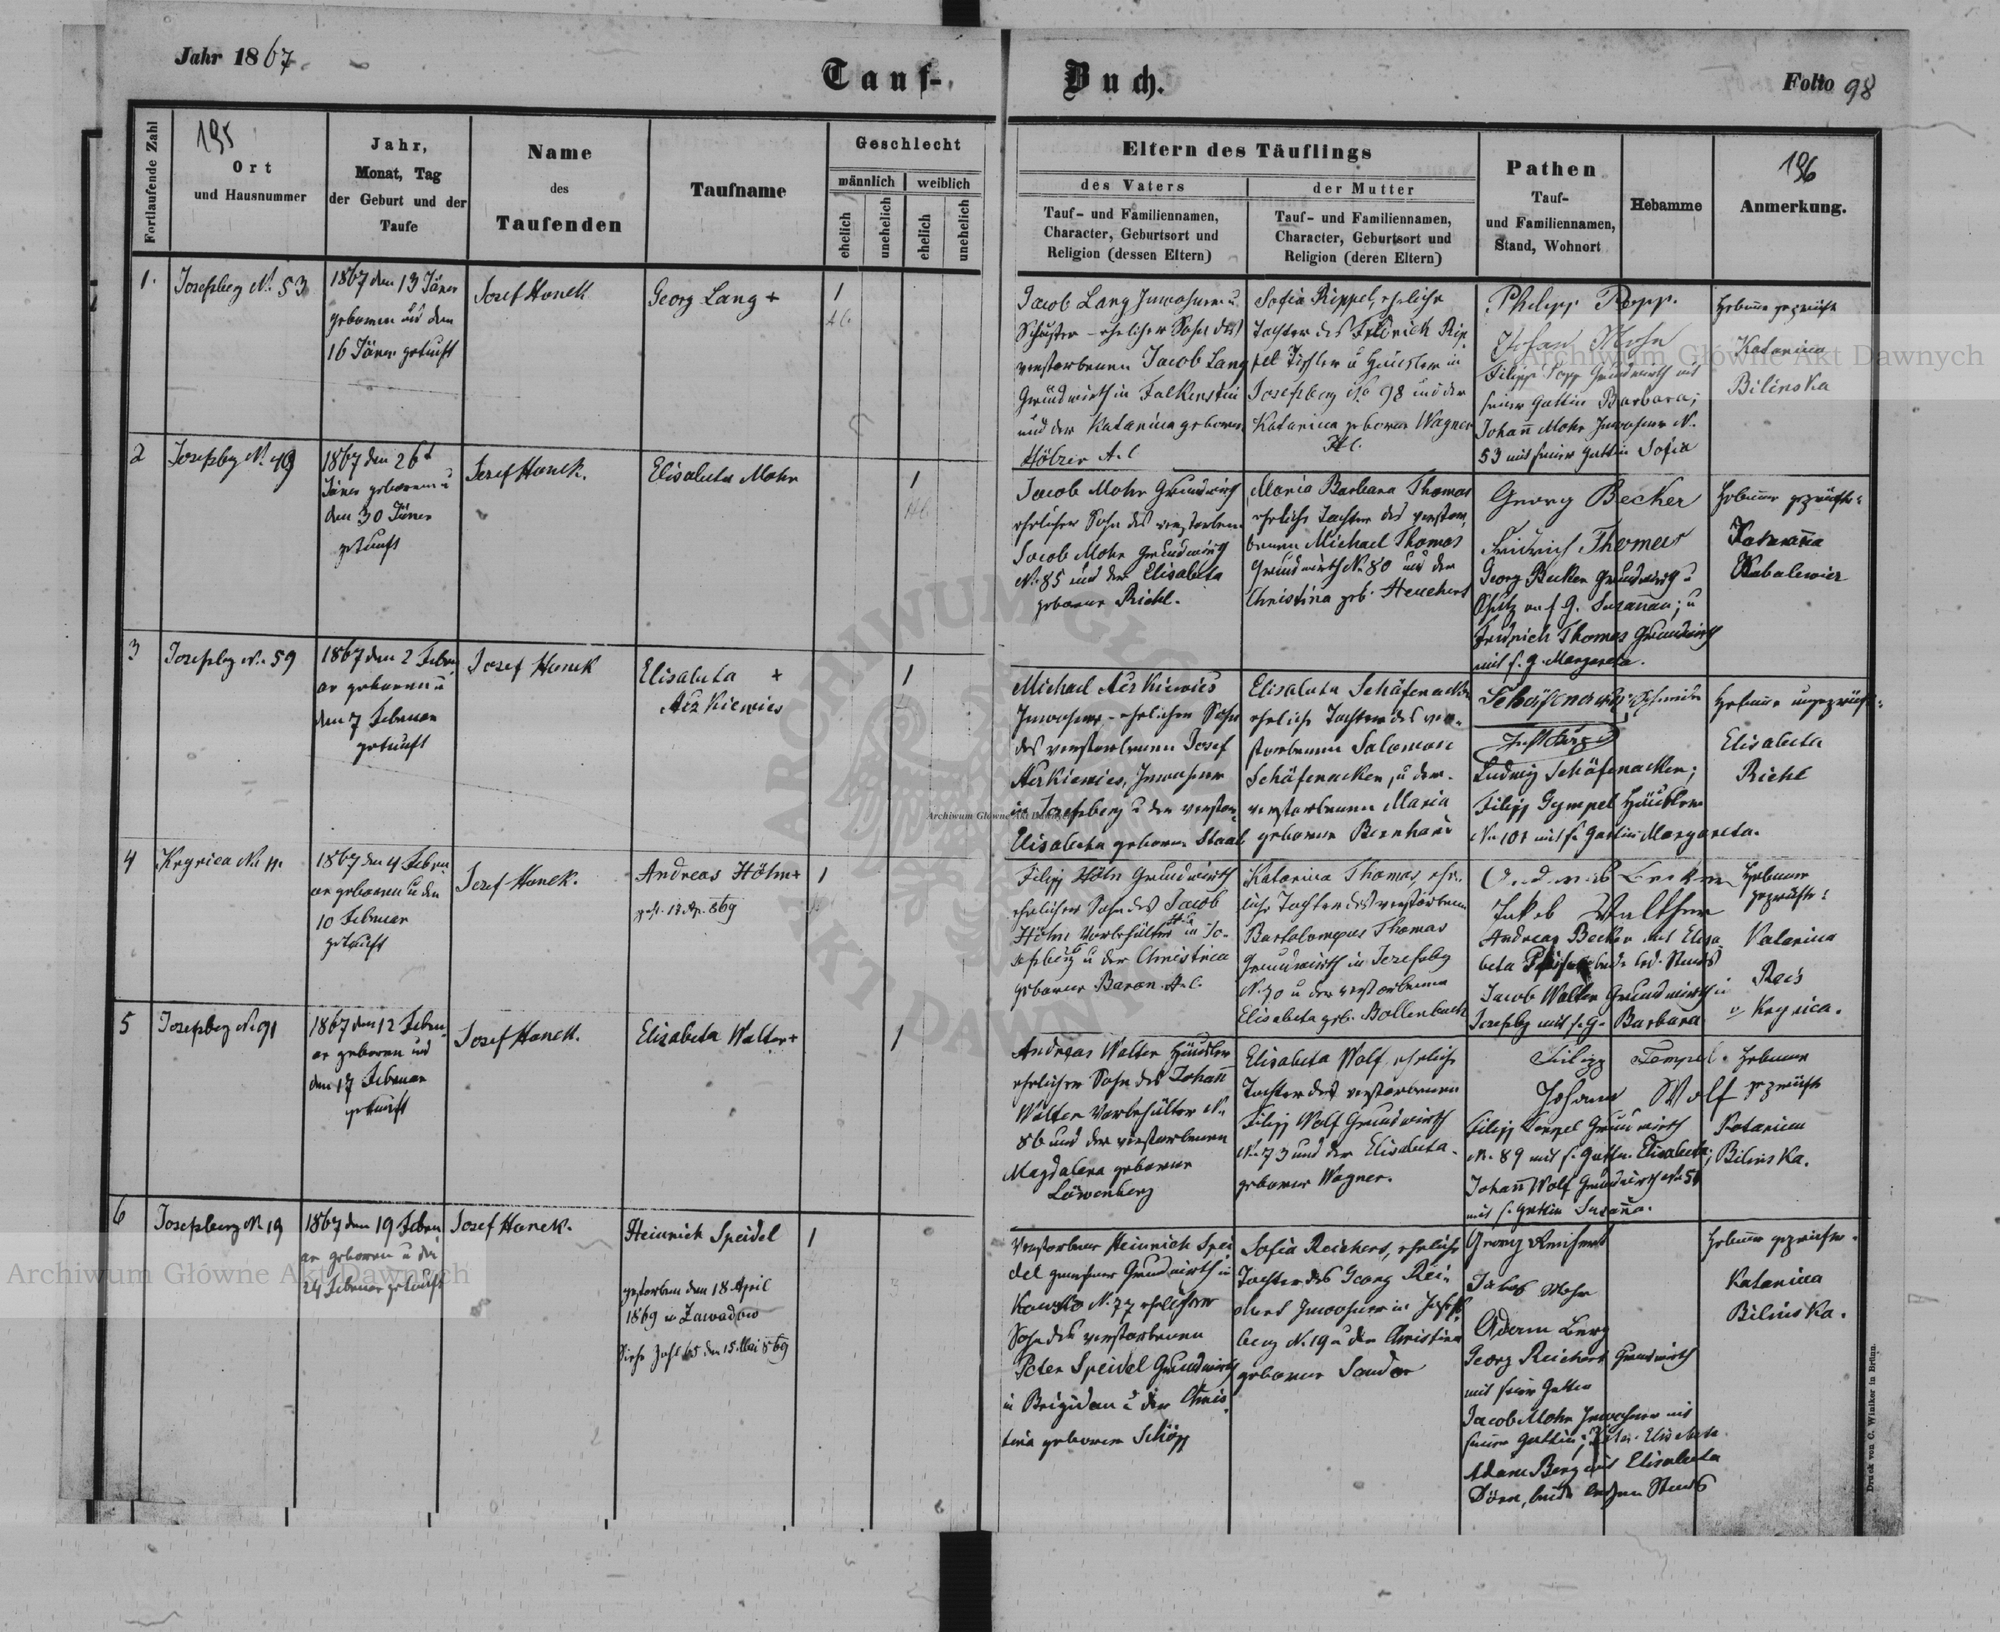 Jahr 1867.
Tauf-Buch.
Folio 98
Fortlaufende Zahl
195
Ort
und Hausnummer
Jahr,
Monat, Tag
der Geburt und der
Taufe
Name
des
Taufenden
Taufname
Geschlecht
männlich
weiblich
ehelich
unehelich
ehelich
unehelich
Eltern des Täuflings
des Vaters
Tauf- und Familiennamen,
Character, Geburtsort und
Religion (dessen Eltern)
der Mutter
Tauf- und Familiennamen,
Character, Geburtsort und
Religion (deren Eltern)
Pathen
Tauf-
und Familiennamen,
Stand, Wohnort
Hebamme
196
Anmerkung.
1.
Josefsberg No. 53
1867 den 13 Jäner
geboren und den
16 Jäner getauft
Josef Hanek
Georg Lang +
1
Jacob Lang Inwohner u.
Schuster - ehelicher Sohn des
verstorbenen Jacob Lang
Grundwirth in Falkenstein
und der Katarina geborene
Hölzer A.C
Sofia Rippel, eheliche
Tochter des Fridrich Rip-
pel Tischler u Häusler in
Josefsberg No 98 und der
Katarina geborene Wagner
H.C.
Philipp Popp.
Johan Mohr
Filipp Popp Grundwirth mit
seiner Gattin Barbara;
Johann Mohr Inwohner N.
53 mit seiner Gattin Sofia
Hebamme geprüfte
Katarina
Bilinska
2
Josefsbg No. 49
1867 den 26t
Jäner geboren u
den 30 Jäner
getauft
Josef Hanek.
Elisabeta Mohr
1
Jacob Mohr Grundwirth
ehelicher Sohn des verstorbenen
Jacob Mohr Grundwirth
No. 85 und der Elisabeta
geborne Riehl.
Maria Barbara Thomas
eheliche Tochter des verstor-
benen Michael Thomas
Grundwirth No 80 und der
Christina geb. Heuchert
Georg Becker
Fridrich Thomas
Georg Becker Grundwirth u
Susanna; u
Fridrich Thomas Grundwirth
mit s. g. Margareta.
Hebamme geprüfte
Katarina
Kabalewicz
3
Josefsbg No. 59
1867 den 2 Febru
ar geboren u
den 7 Februar
getauft
Josef Hanek
Elisabeta +
Aszkiewics
1
Michael Aszkiewics
Inwohner - ehelicher Sohn
des verstorbenen Josef
Aszkiewics, Inwohner
in Josefsberg u der verstor-
Elisabeta geborne Staal
Elisabeta Schäfenacker
eheliche Tochter des ver-
storbenen Salomon
Schäfenacker, u der
verstorbenen Maria
geborne Bernhard
Ludwig Schäfenacker;
Filipp Gympel Häusler
No 101 mit s. Gattin Margareta.
Hebamme ungeprüft
Elisabeta
Riehl
4
Krynica No. 11.
1867 den 4 Febru
ar geboren u den
10 Februar
getauft
Josef Hanek.
Andreas Höhn +
gest. 12. Ap. 869
1
Filipp Höhn Grundwirth
ehelicher Sohn des Jacob
Höhn Vorbehälter in Jo-
sefsberg u der Christina
geborne Baron A.C.
Katarina Thomas, ehe-
liche Tochter des verstorbenen
Bartolomeus Thomas
Grundwirth in Josefsbg
No. 70 u der verstorbenen
Elisabeta geb. Bollenbach
Andreas Becker
Jakob Walther
Andreas Becker mit Elisa-
Jacob Walter Grundwirth in
Josefsbg mit s. G. Barbara
Hebamme
geprüfte
Katarina
Reis
v Krynica.
5
Josefsbg No. 91
1867 den 12 Febru
ar geboren und
den 17 Februar
getauft
Josef Hanek.
Elisabeta Walter +
1
Andreas Walter Häusler
ehelicher Sohn des Johann
Walter Vorbehälter No.
86 und der verstorbenen
Magdalena geborene
Löwenberg
Elisabeta Wolf eheliche
Tochter des verstorbenen
Filipp Wolf Grundwirth
No. 73 und der Elisabeta
geborne Wagner.
Filipp Tempel.
Johann Wolf
Filipp Tempel Grundwirth
No. 89 mit s. Gattin Elisabeta;
Johann Wolf Grundwirth No 51
mit s. Gattin Susanna.
Hebamme
geprüfte
Katarina
Bilinska.
6
Josefsberg No 19
1867 den 19 Febru
ar geboren u den
24 Februar getauft
Josef Hanek.
Heinrich Speidel
gestorben den 18 April
1869 in Zawadow
Siehe Zahl 65 den 15 Mai 869
1
Verstorbener Heinrich Spei
del gewesener Grundwirth in
No. 77 ehelicher
Sohn des verstorbenen
Peter Speidel Grundwirth
in Brigidau u der Chris-
tina geborene Schöpp
Sofia Reichert, eheliche
Tochter des Georg Rei-
chert Inwohner in Josefs-
berg No. 19 u der Christina
geborne Sander
Georg Reichert
Jakob Mohr
Adam Berg
Georg Reichert Grundwirth
mit seiner Gattin
Jacob Mohr Inwohner mit
seiner Gattin; Elisabeta
Adam Berg mit Elisabeta
Dörr, beide ledigen Stands
Hebamme geprüfte
Katarina
Bilinska.
Druck von C. Winiker in Brünn.
Archiwum Główne Akt Dawnych
Archiwum Główne Akt Dawnych
Archiwum Główne Akt Dawnych
ARCHIWUM GŁÓWNE AKT DAWNYCH